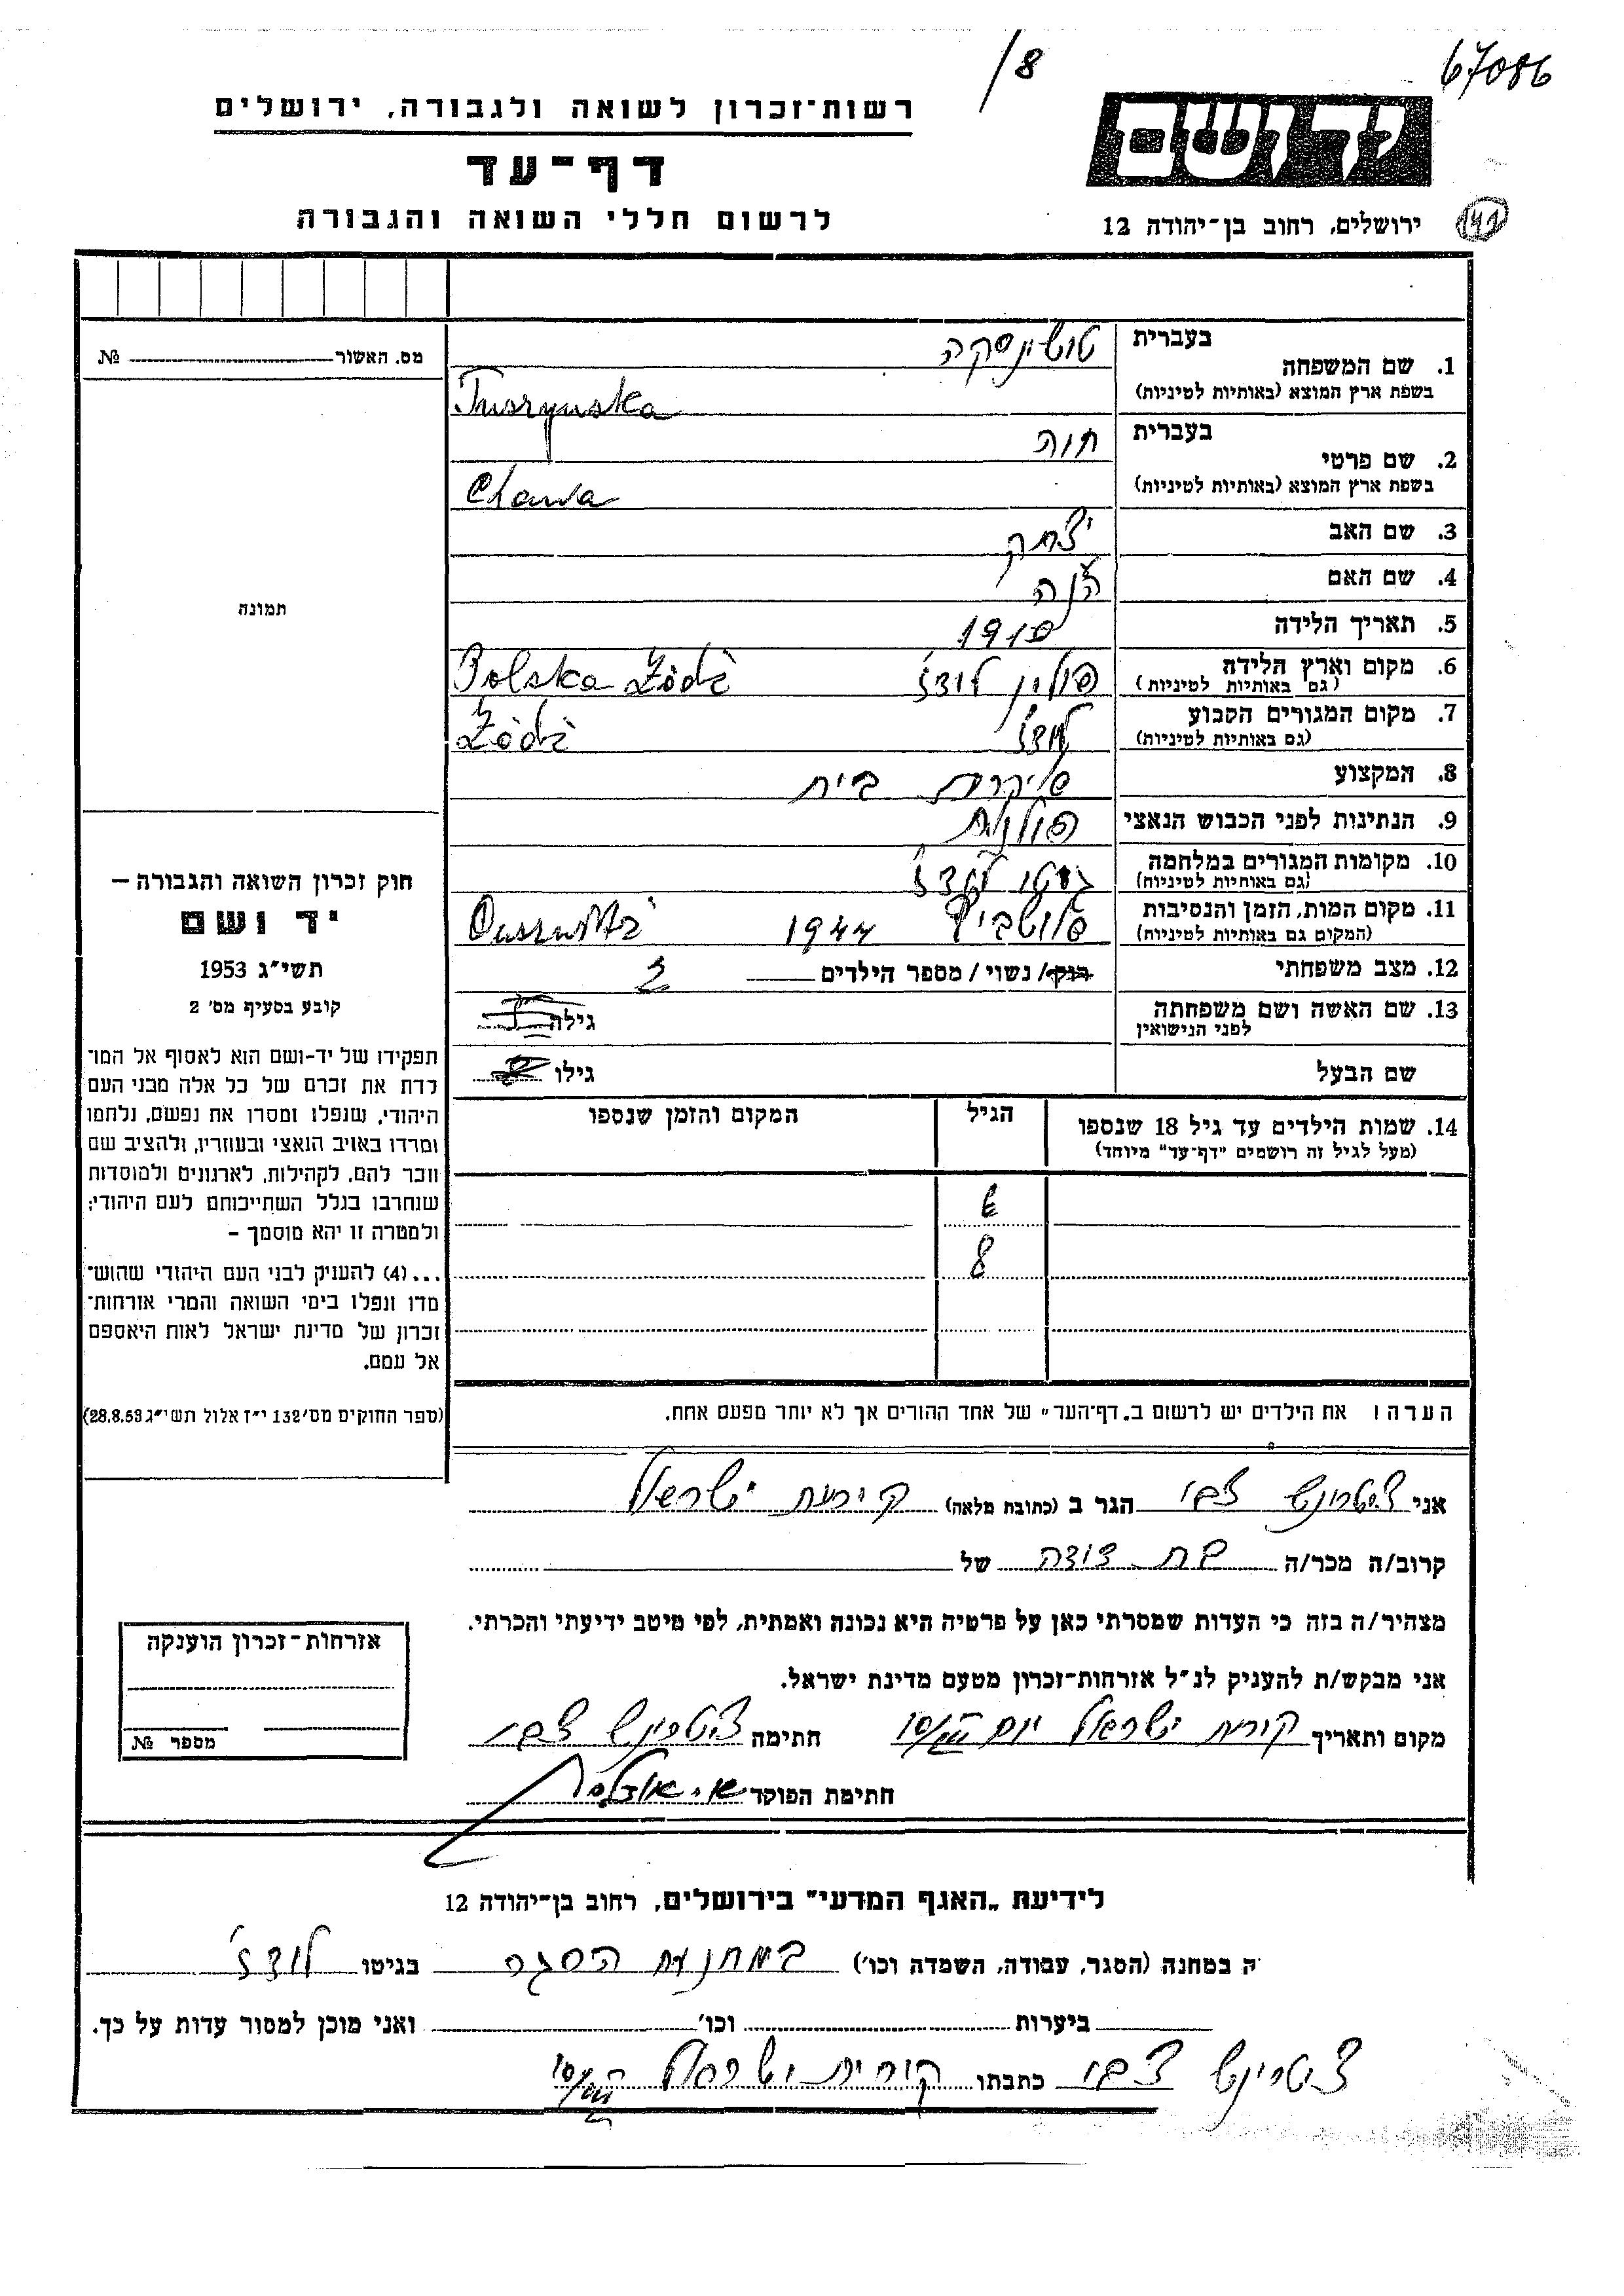 67086
/8
רשות־זכרון לשואה ולגבורה, ירושלים
דף־עד
לרשום חללי השואה והגבורה
ידושם
ירושלים, רחוב בן־יהודה 12
141
מס. האשור № 
תמונה
בעברית טושינסקה
1. שם המשפחה
בשפת ארץ המוצא (באותיות לטיניות) Tuszynska
בעברית חוה
2. שם פרטי
בשפת ארץ המוצא (באותיות לטיניות) Chawa
3. שם האב יצחק
4. שם האם
5. תאריך הלידה 1910
6. מקום וארץ הלידה פולין לודז' Polska Łódź
(גם באותיות לטיניות)
7. מקום המגורים הקבוע לודז' Łódź
(גם באותיות לטיניות)
8. המקצוע עקרת בית
9. הנתינות לפני הכבוש הנאצי פולנית
10. מקומות המגורים במלחמה גטו לודז'
(גם באותיות לטיניות)
11. מקום המות, הזמן והנסיבות 1944
(המקום גם באותיות לטיניות)
12. מצב משפחתי רווק / נשוי / מספר הילדים 2
13. שם האשה ושם משפחתה גילה
לפני הנישואין
שם הבעל גילו
14. שמות הילדים עד גיל 18 שנספו הגיל המקום והזמן שנספו
(מעל לגיל זה רושמים "דף־עד" מיוחד)
6
8
הערה: את הילדים יש לרשום ב„דף־העד" של אחד ההורים אך לא יותר מפעם אחת.
חוק זכרון השואה והגבורה —
יד ושם
תשי"ג 1953
קובע בסעיף מס' 2
תפקידו של יד-ושם הוא לאסוף אל המו־
לדת את זכרם של כל אלה מבני העם
היהודי, שנפלו ומסרו את נפשם, נלחמו
ומרדו באויב הנאצי ובעוזריו, ולהציב שם
וזכר להם, לקהילות, לארגונים ולמוסדות
שנחרבו בגלל השתייכותם לעם היהודי;
ולמטרה זו יהא מוסמך –
...(4) להעניק לבני העם היהודי שהוש־
מדו ונפלו בימי השואה והמרי אזרחות־
זכרון של מדינת ישראל לאות היאספם
אל עמם.
(ספר החוקים מס' 132 י"ז אלול תשי"ג 28.8.53)
אני צבי הגר ב (כתובת מלאה) קירית ישראל
קרוב/ה מכר/ה בת דודה של
מצהיר/ה בזה כי העדות שמסרתי כאן על פרטיה היא נכונה ואמתית, לפי מיטב ידיעתי והכרתי.
אני מבקש/ת להעניק לנ"ל אזרחות־זכרון מטעם מדינת ישראל.
מקום ותאריך קירית ישראל יום חתימה צבי
חתימת הפוקד
אזרחות־זכרון הוענקה
מספר №
לידיעת „האגף המדעי" בירושלים, רחוב בן־יהודה 12
ה במחנה (הסגר, עבודה, השמדה וכו') במחנות הסגר בגיטו לודז'
ביערות וכו' ואני מוכן למסור עדות על כך.
צבי כתבתו קירית ישראל